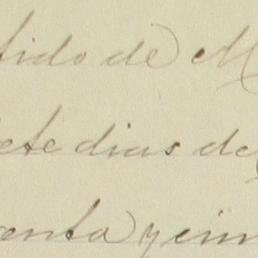 tido de M
ete dias de
enta y cin